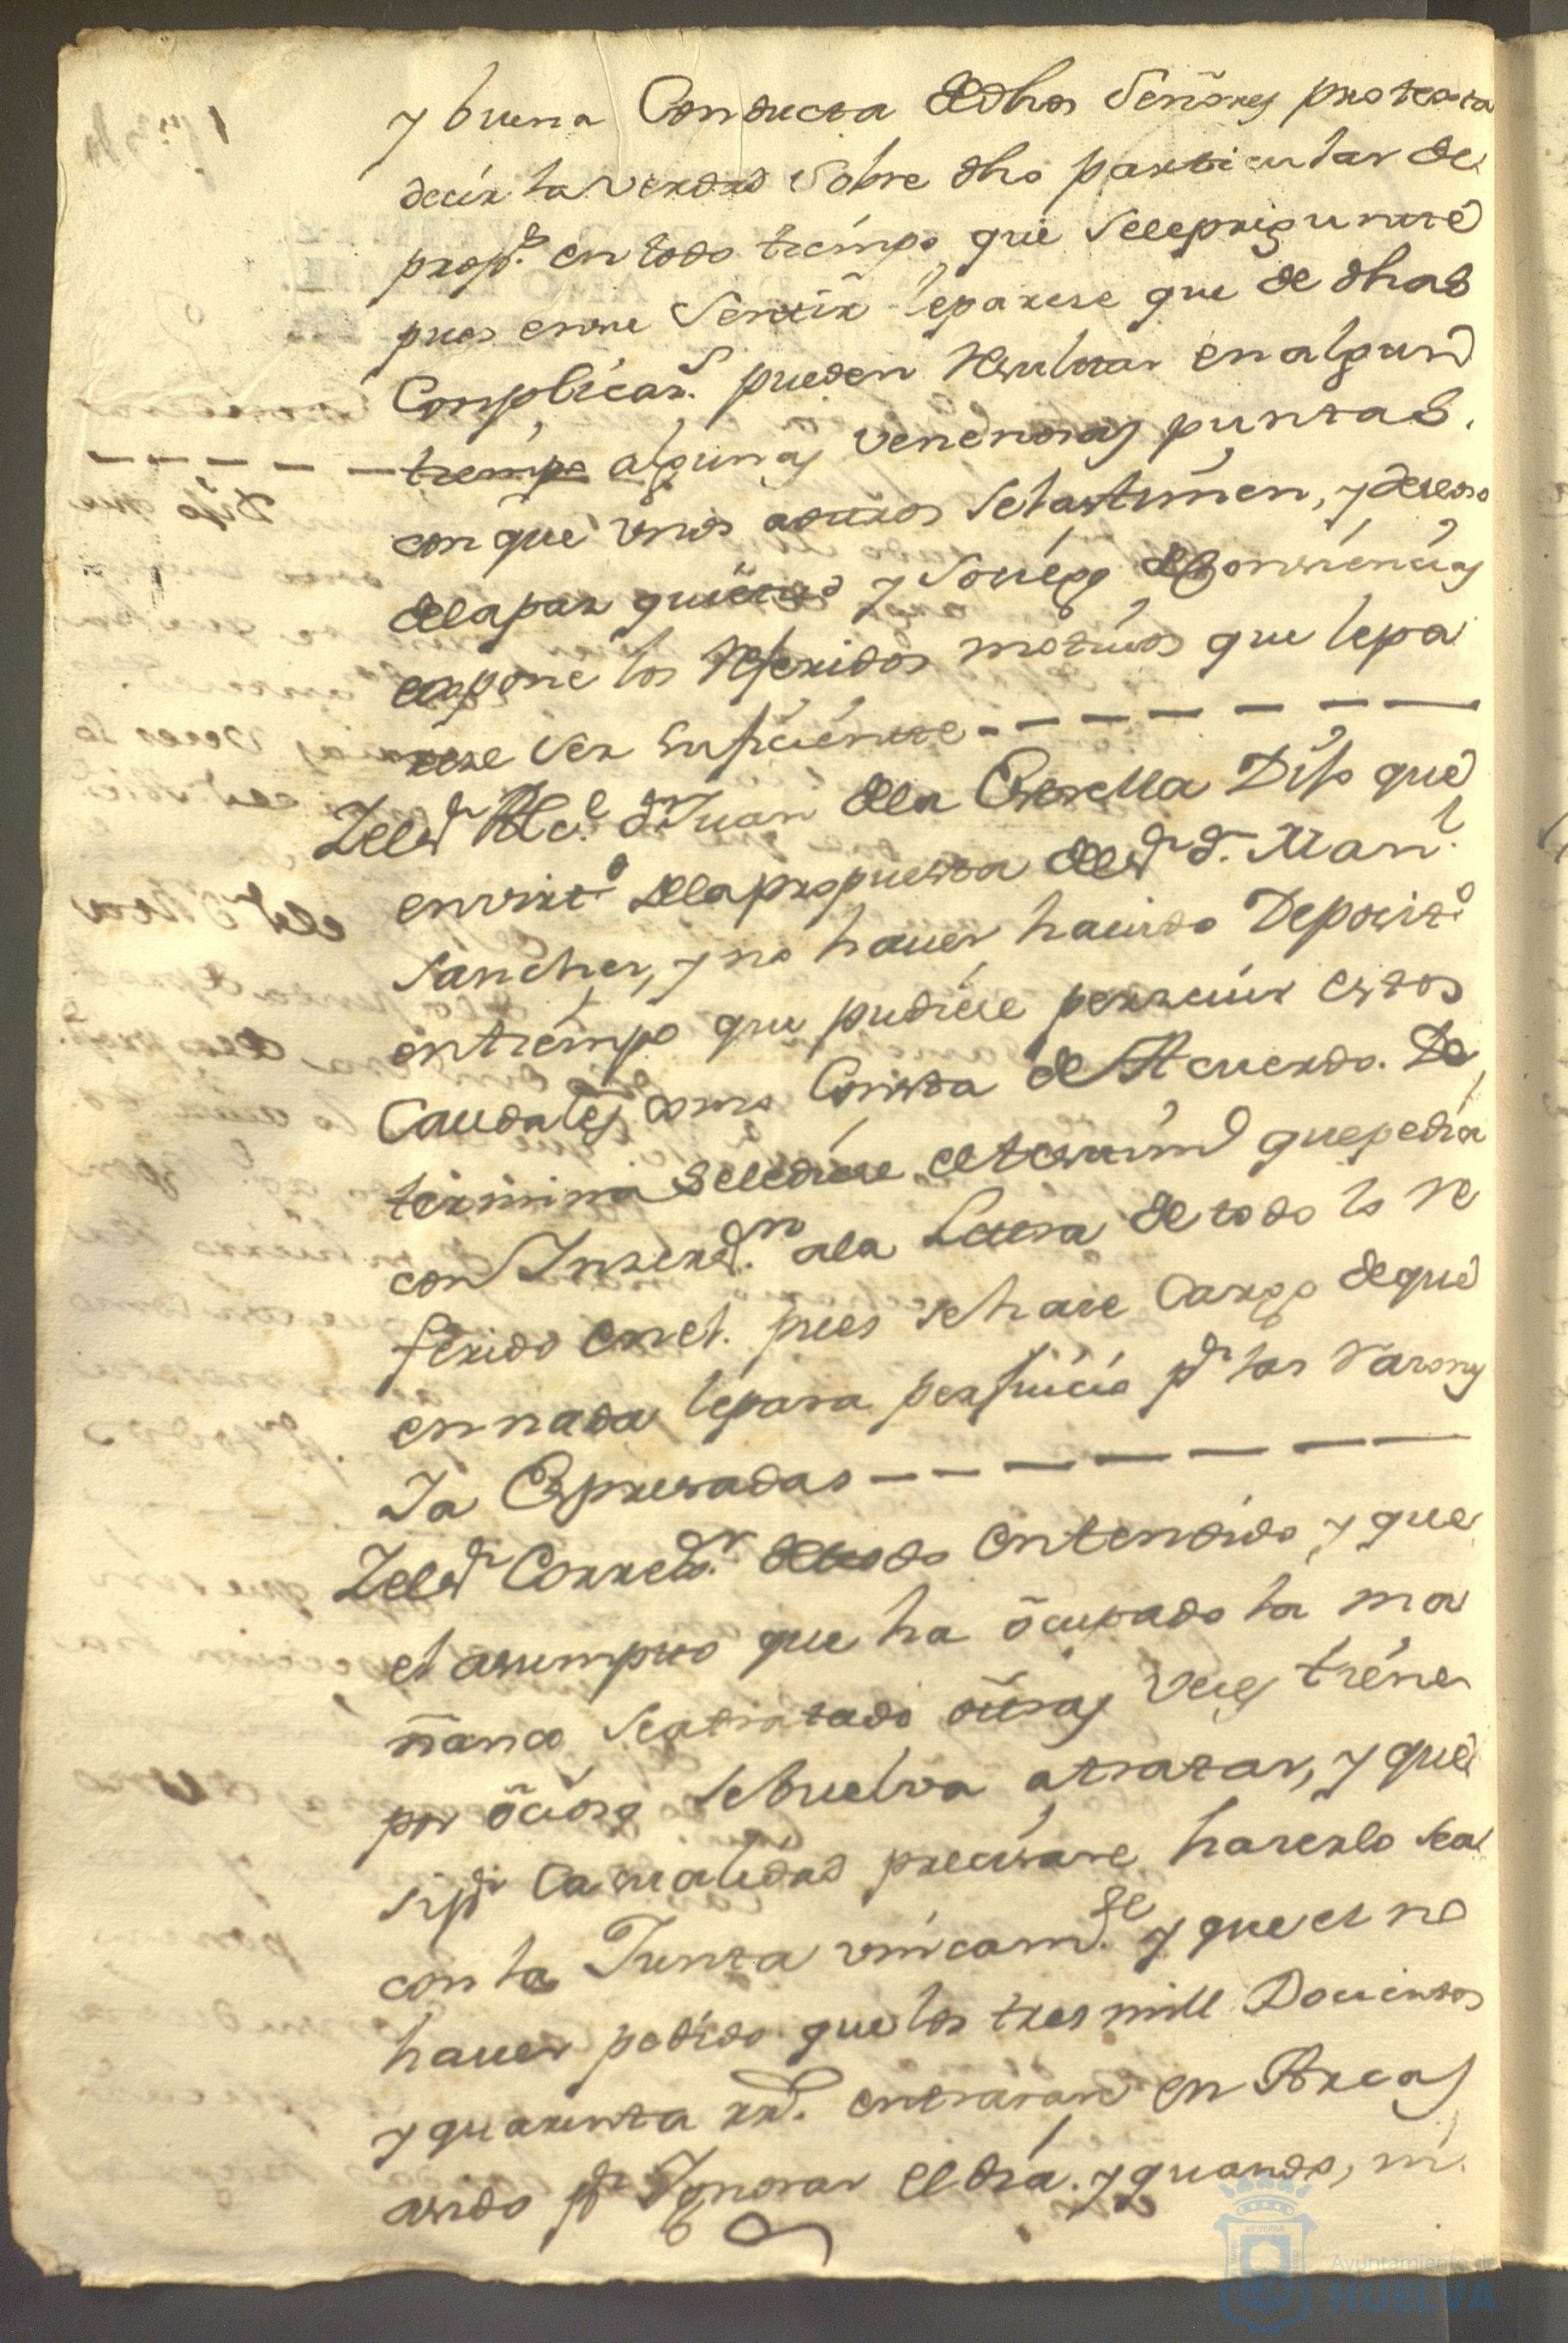 y buena Conducta dedhos Señores protesta
decir la verdad sobre dho particular de
prop.s en todo tiempo que sele preguntaré
pues en me sentir leparese que de dhas
Complicaz.s pueden resultar en algun
tiempo algunas venenosas puntas
con que unos a otros se lastimen, y deseoso
delapaz quietud y sosiego de Consiencias
expone los referidos motivos que lepa
rese ser suficiente
Yelsr Alc.e dn Juan dela Estrella Dijo que
en virtd delapropuesta delsr dn Man.l
Sanches, y no haver havido Deposit.o
entiempo que pudiese persevir estos
Caudales como Consta de Acuerdo. De
termina selediese eltestimo que pedia
con Inserz.on ala Letra de todo lo re
ferido en el. pues se hase Cargo de que
en nada lepara perjuicio pr las rasones
Ya Espresadas
Yelsr Corred.r detodo entendido, y que
el asumpto que ha ocupado la ma
ñana se atratado otras veses tiene
por ocioso sebuelva atratar, y que
sipr Casualidad precisare haserlo sea
con la Junta unicam.te y que el no
haver pedido que los tres mill Docientos
y quarenta rr.s entraran en Arcas
asido pr Ygnorar el dia. y quando, ni
Ayuntamiento de
HUELVA